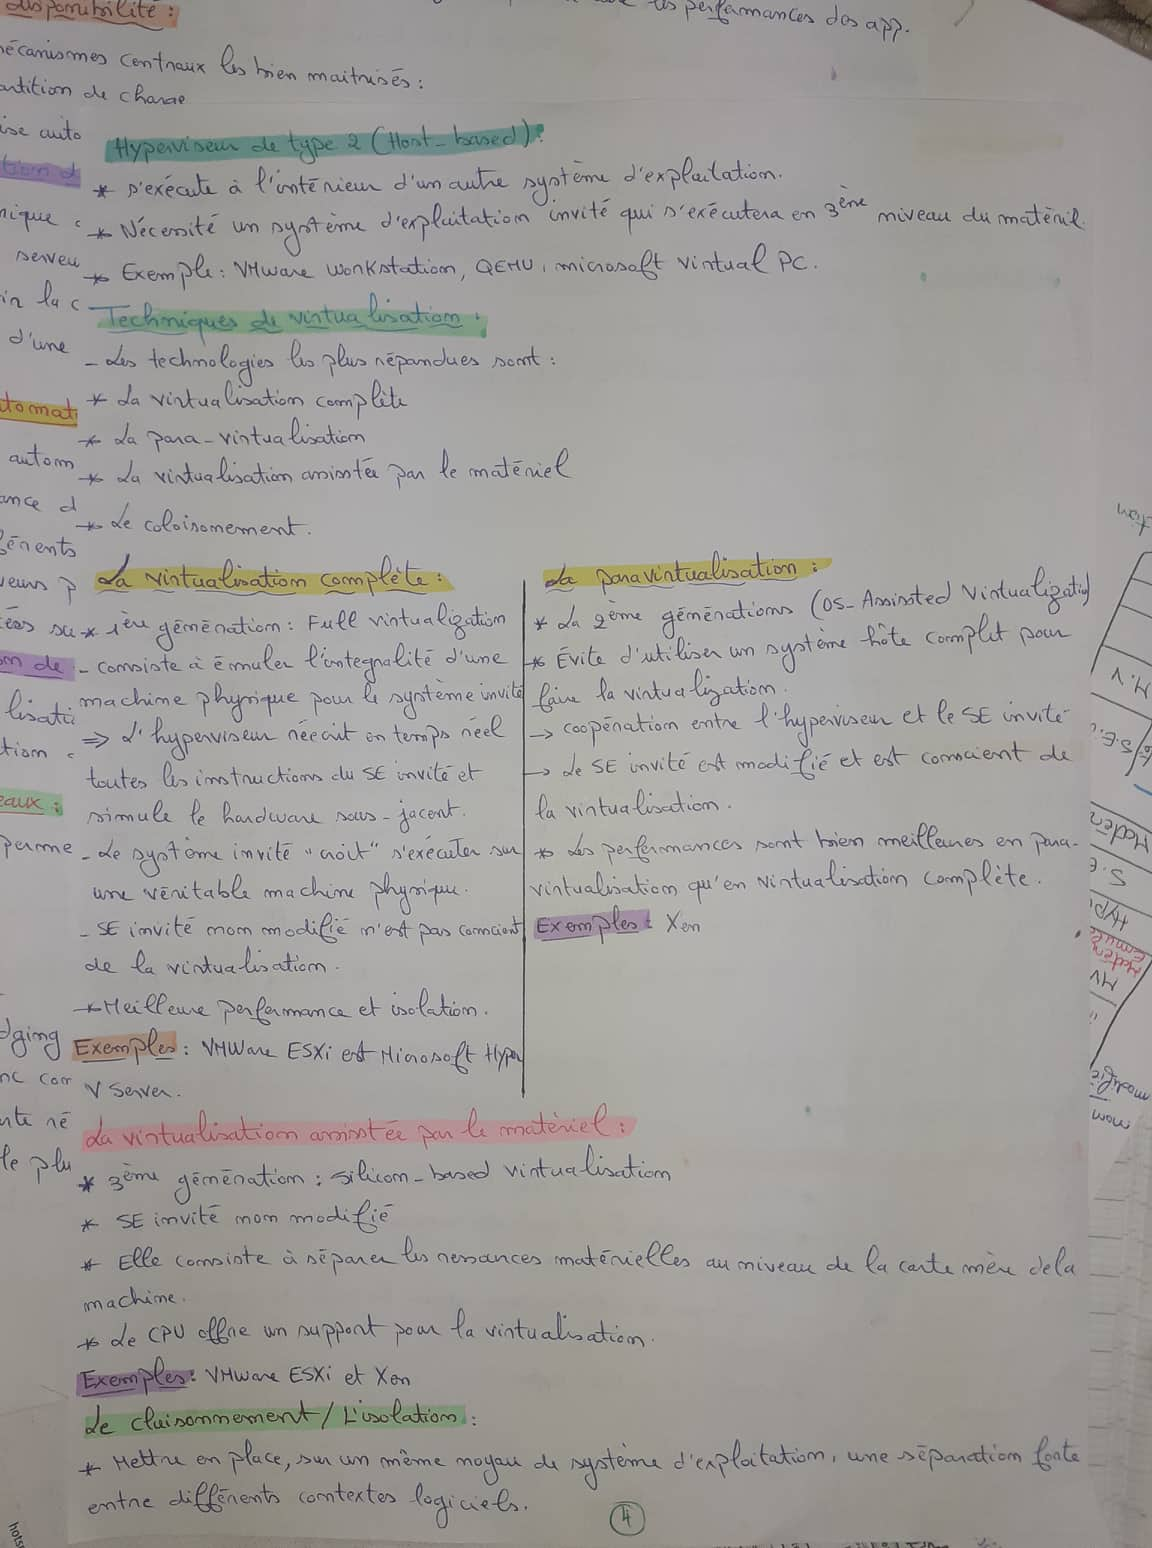 disponibilité :
les performances des app.
mécanismes centraux les bien maitrisés :
de charge
Hyperviseur de type 2 (Host-based) :
* s'exécute à l'intérieur d'un autre système d'exploitation.
* Nécessité un système d'exploitation invité qui s'exécutera en 3ème niveau du matériel.
* Exemple : VMware workstation, QEMU, microsoft virtual PC.
Techniques de virtualisation :
- Les technologies les plus répandues sont :
* La virtualisation complète
* La para-virtualisation
* La virtualisation assistée par le matériel
* Le coloisonement.
La virtualisation complète :
* 1ère génération : Full virtualization
- consiste à émuler l'integralité d'une
machine physique pour le système invité
⇒ L'hyperviseur réecrit en temps réel
toutes les instructions du SE invité et
simule le hardware sous-jacent.
- Le système invité "croit" s'exécuter sur
une véritable machine physique.
- SE invité non modifié n'est pas conscient
de la virtualisation.
* Meilleure performance et isolation.
Exemples : VMWare ESXi est Microsoft Hyper
V Server.
La paravirtualisation :
* La 2ème générations (OS-Assisted Virtualization)
* Évite d'utiliser un système hôte complet pour
faire la virtualization.
→ coopération entre l'hyperviseur et le SE invité
→ Le SE invité est modifié et est conscient de
la virtualisation.
* Les performances sont bien meilleures en para-
virtualisation qu'en virtualisation complète.
Exemples : Xen
La virtualisation assistée par le matériel :
* 3ème génération : silicon-based virtualisation
* SE invité non modifié
* Elle consiste à séparer les ressources matérielles au niveau de la carte mère de la
machine.
* Le CPU offre un support pour la virtualisation.
Exemples : VMware ESXi et Xen
Le cluisonnement / L'isolation :
* Mettre en place, sur un même noyau de système d'exploitation, une séparation forte
entre différents contextes logiciels.
4